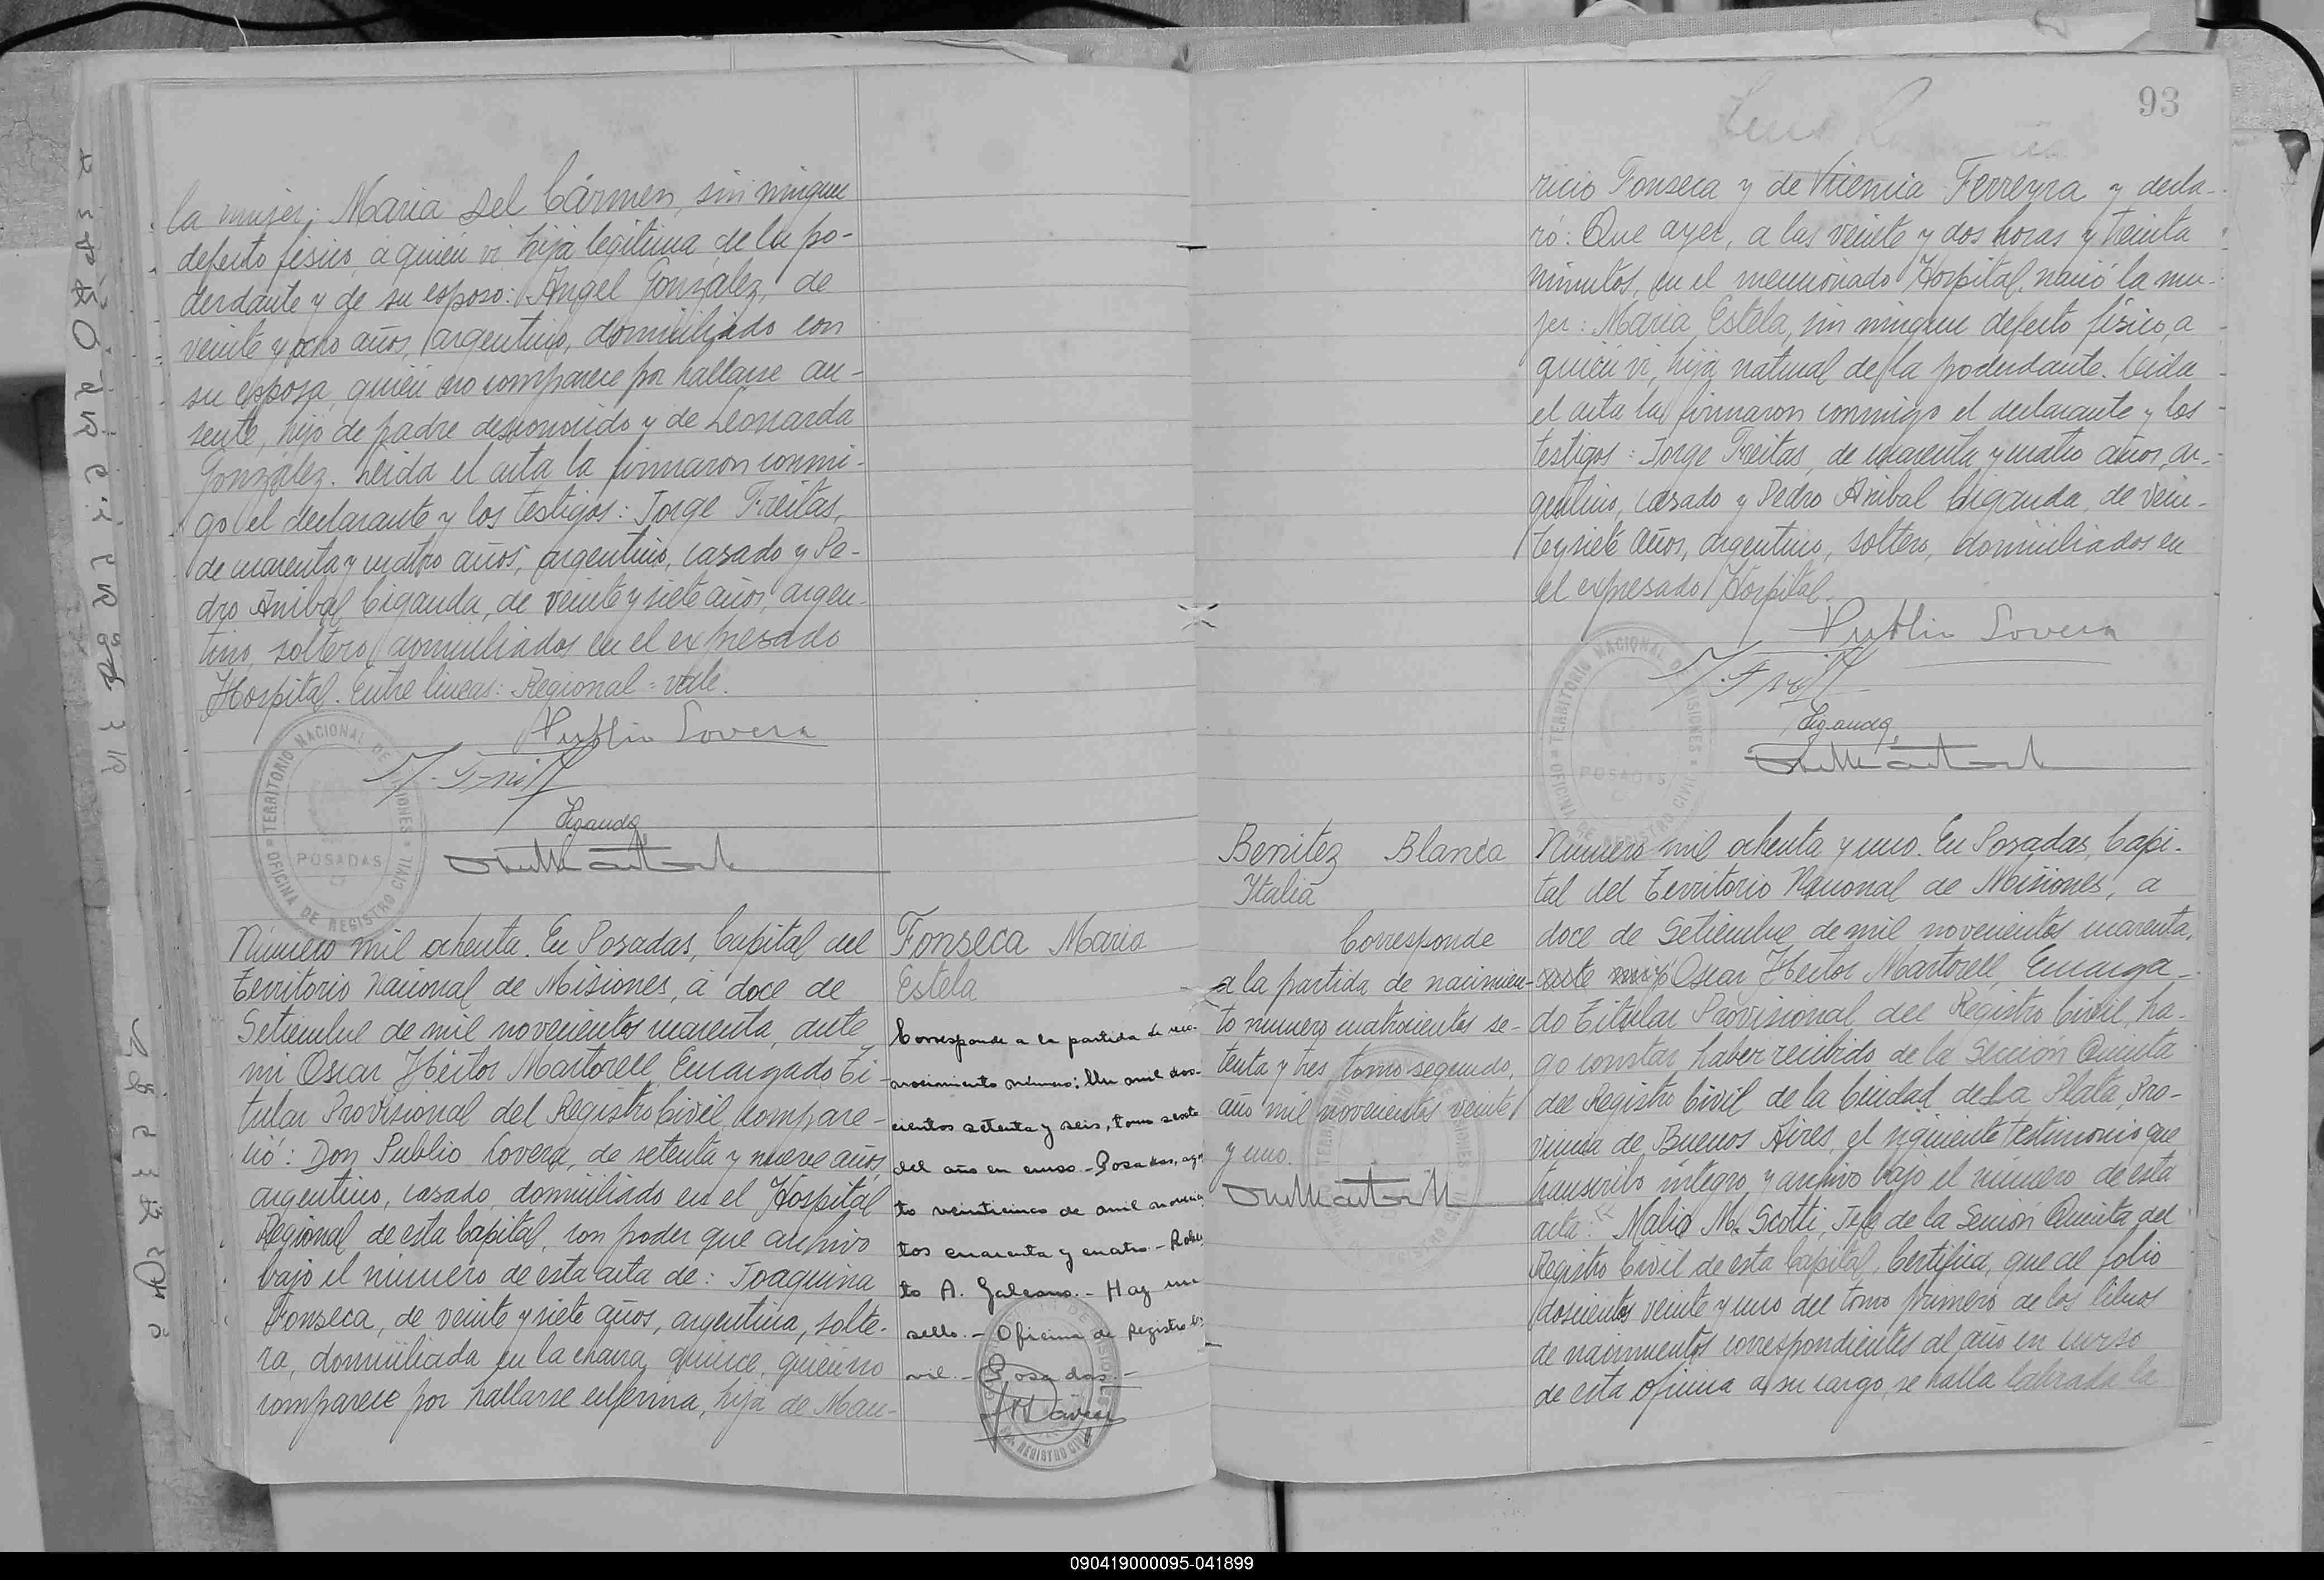 la mujer: Maria del Cármen, sin ningun
defecto fisico, a quién vi hija legitima de la po-
derdante y de su esposo: Angel González, de
veinte y ocho años, argentino, domiciliado con
su esposa, quién no comparece por hallarse au-
sente, hijo de padre desconocido y de Leonarda
González. Leida el acta la firmaron conmi-
go el declarante y los testigos: Jorge Freitas,
de cuarenta y cuatro años, argentino, casado y Pe-
dro Anibal Ciganda, de veinte y siete años, argen-
tino, soltero, domiciliados en el expresado
Hospital. Entre lineas: Regional = vale.
Publio Lovera
Ciganda
TERRITORIO NACIONAL DE MISIONES
OFICINA DE REGISTRO CIVIL
POSADAS
Número mil ochenta. En Posadas, Capital del
Territorio Nacional de Misiones, a doce de
Setiembre de mil novecientos cuarenta, ante
mi Oscar Héctor Martorell, Encargado Ti-
tular Provisional del Registro Civil, compare-
ció: Don Publio Lovera, de setenta y nueve años,
argentino, casado, domiciliado en el Hospital
Regional de esta Capital, con poder que archivo
bajo el número de esta acta de: Joaquina
Fonseca, de veinte y siete años, argentina, solte-
ra, domiciliada en la chacra quince, quién no
comparece por hallarse enferma, hija de Mau-
Fonseca Maria
Estela
Corresponde a la partida de reco-
nocimiento número: Un mil dos-
cientos setenta y seis, tomo sexto
del año en curso.- Posadas, agos
to veinticinco de mil novecien
tos cuarenta y cuatro.- Rober
to A. Galeano.- Hay un
sello.- Oficina de Registro Ci
vil.- Posadas.-
93
ricio Fonseca y de Vicencia Ferreyra y decla-
ró: Que ayer, a las veinte y dos horas y treinta
minutos, en el mencionado Hospital, nació la mu-
jer: Maria Estela, sin ningun defecto fisico, a
quién vi, hija natural de la poderdante. Leida
el acta la firmaron conmigo el declarante y los
testigos: Jorge Freitas, de cuarenta y cuatro años, ar-
gentino, casado y Pedro Anibal Ciganda, de vein-
te y siete años, argentino, soltero, domiciliados en
el expresado Hospital.
Publio Lovera
Ciganda
TERRITORIO NACIONAL DE MISIONES
OFICINA DE REGISTRO CIVIL
POSADAS
Benitez Blanca
Italia
Corresponde
a la partida de nacimien-
to numero cuatrocientos se-
tenta y tres tomo segundo,
año mil novecientos veinte
y uno.
Número mil ochenta y uno. En Posadas, Capi-
tal del Territorio Nacional de Misiones, a
doce de Setiembre de mil novecientos cuarenta,
Oscar Héctor Martorell, Encarga-
do Titular Provisional del Registro Civil, ha-
go constar haber recibido de la Sección Quinta
del Registro Civil de la Ciudad de La Plata, Pro-
vincia de Buenos Aires, el siguiente testimonio que
transcribo integro y archivo bajo el número de esta
acta: "Malio M. Scotti, Jefe de la Sección Quinta del
Registro Civil de esta Capital, Certifica, que al folio
doscientos veinte y uno del tomo primero de los libros
de nacimientos correspondientes al año en curso
de esta oficina a su cargo, se halla labrada la
090419000095-041899